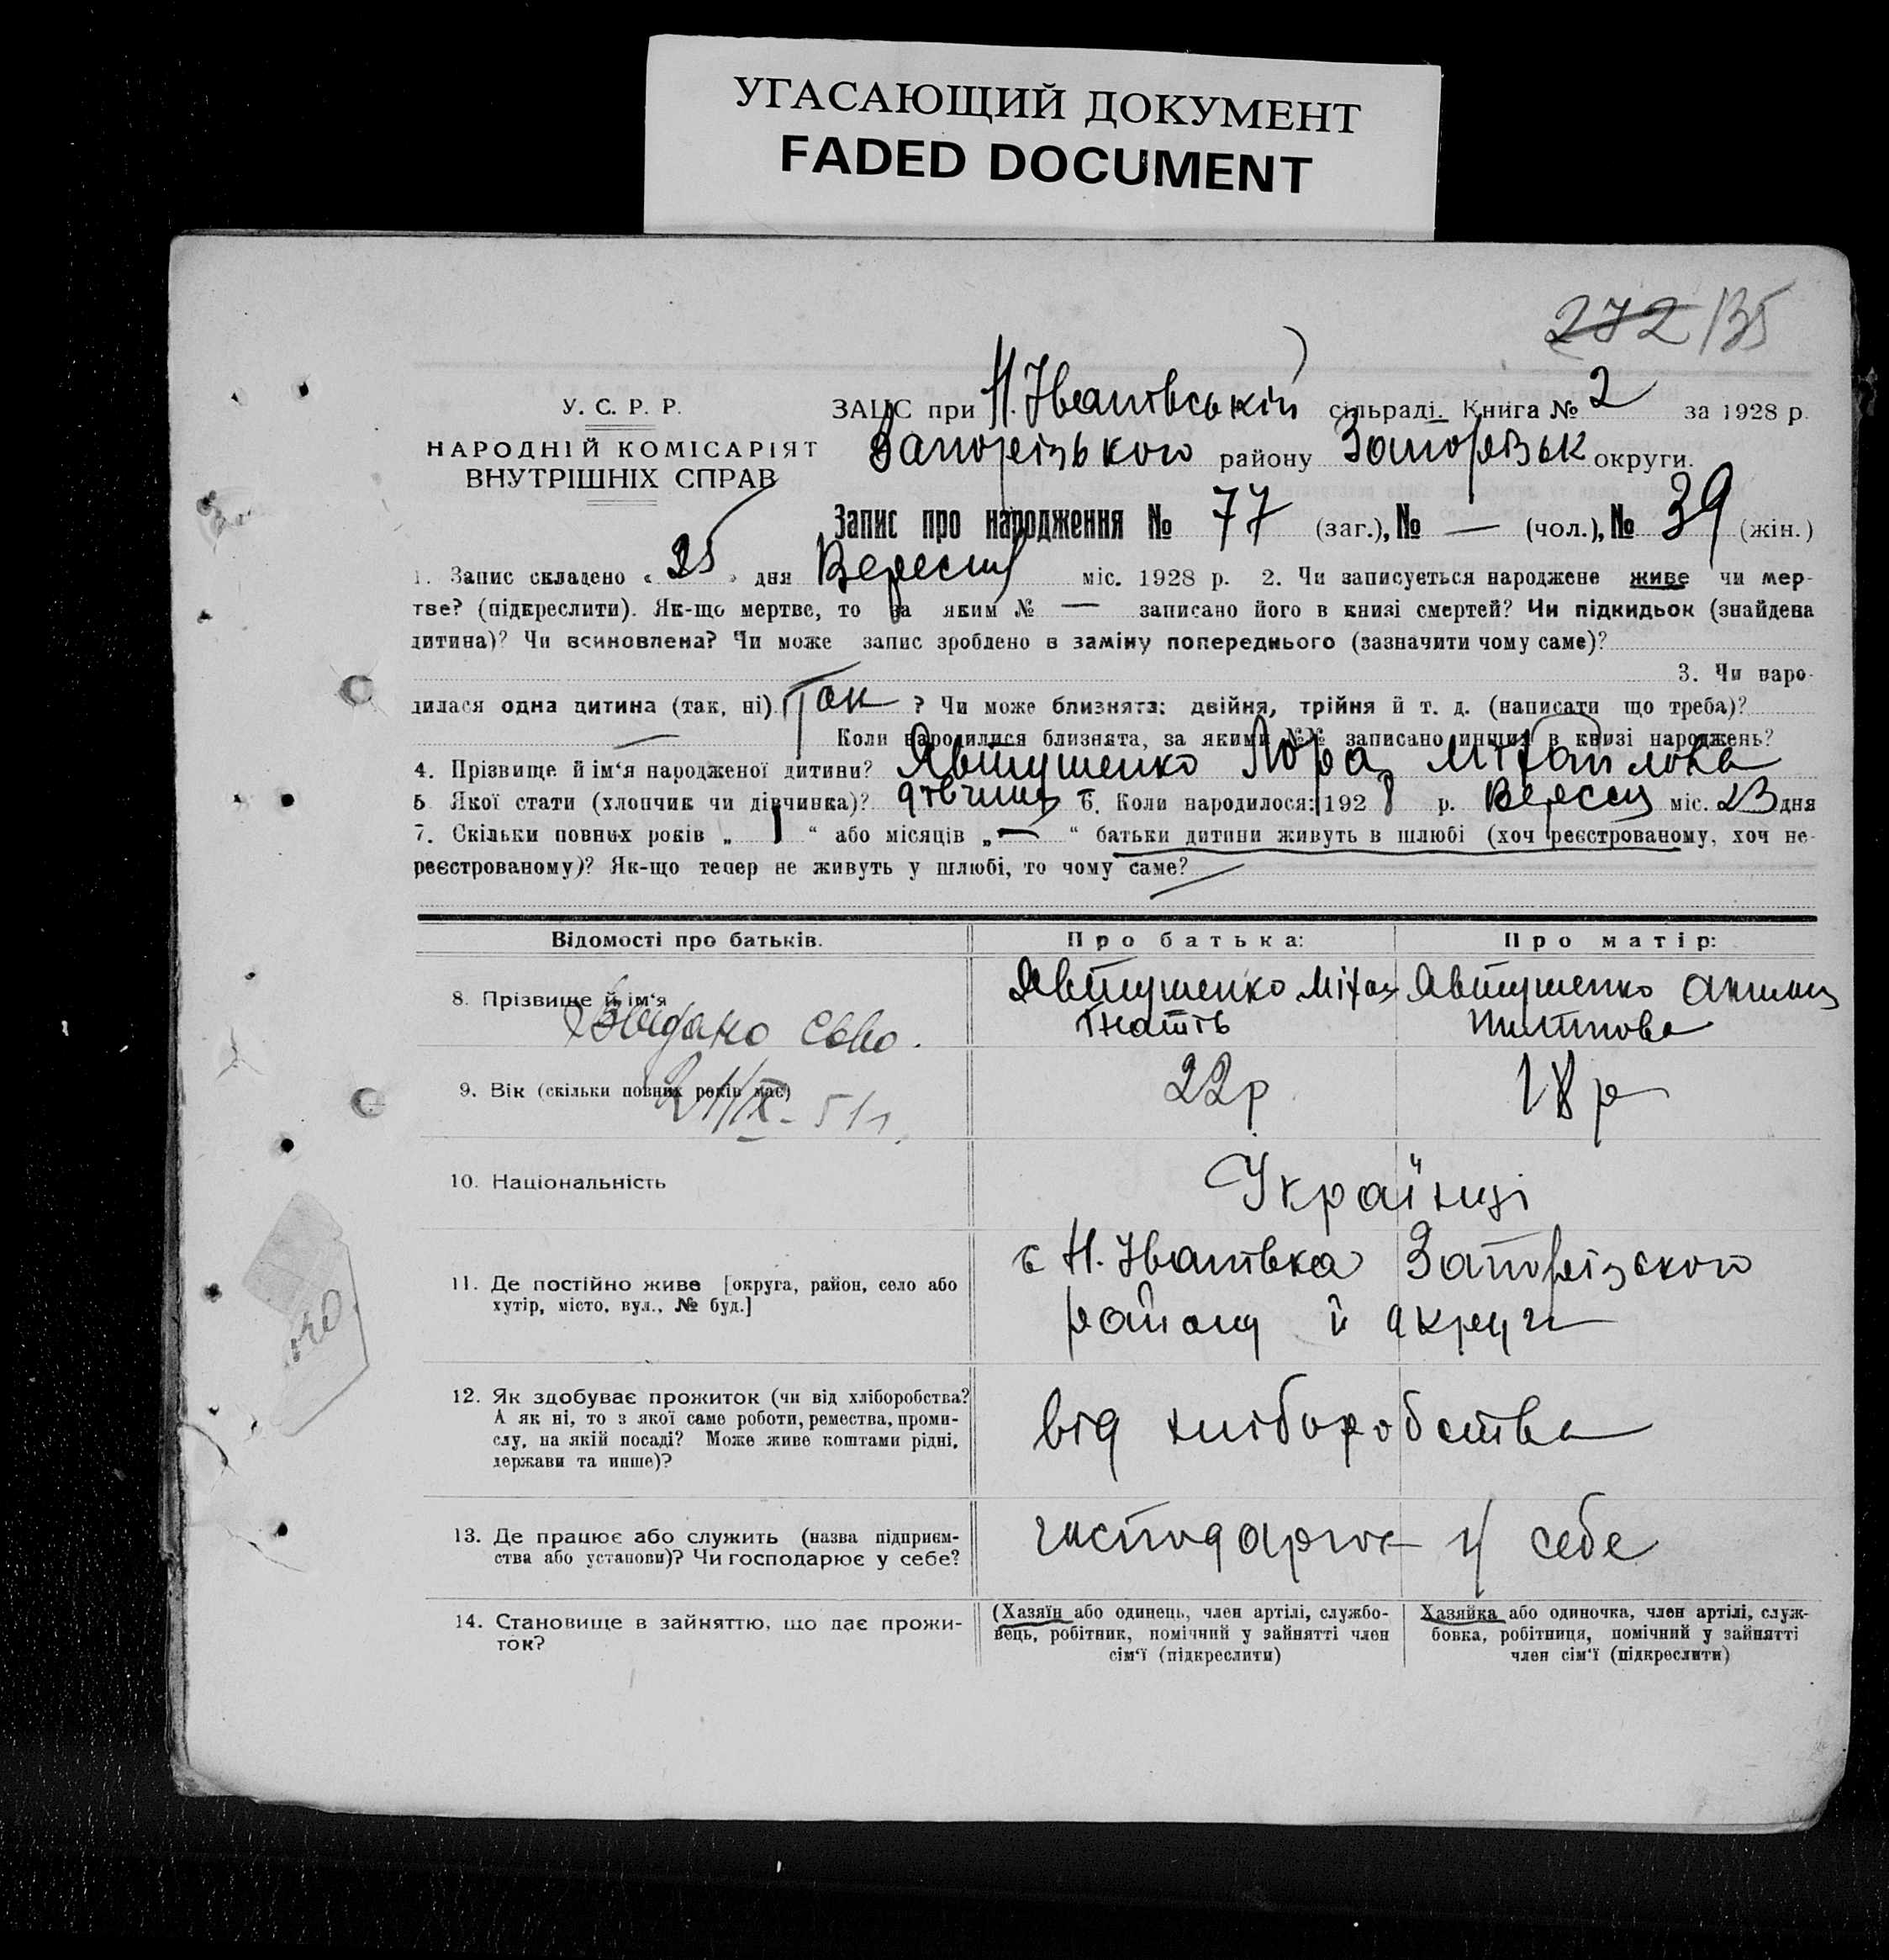 УГАСАЮЩИЙ ДОКУМЕНТ
FADED DOCUMENT
272/135
У. С. Р. Р.
НАРОДНІЙ КОМІСАРІЯТ
ВНУТРІШНІХ СПРАВ
ЗАЦС при Н. Іванівській сільраді. Книга № 2 за 1928 р.
Запорізького району Запорізьк округи.
Запис про народження № 77 (заг.), № — (чол.), № 39 (жін.)
1. Запис складено « 25 » дня Вересня міс. 1928 р. 2. Чи записується народжене живе чи мер-
тве? (підкреслити). Як-що мертве, то за яким № — записано його в книзі смертей? Чи підкидьок (знайдена
дитина)? Чи всиновлена? Чи може запис зроблено в заміну попереднього (зазначити чому саме)?
3. Чи наро-
дилася одна дитина (так, ні) Так ? Чи може близнята: двійня, трійня й т. д. (написати що треба)?
— Коли народилися близнята, за якими №№ записано инших в книзі народжень?
4. Прізвище й ім‘я народженої дитини? Явтушенко Лора Міхайловна
5 Якої стати (хлопчик чи дівчинка)? дівчина 6. Коли народилося: 1928 р. Вересня міс. 23 дня
7. Скільки повних років „ 1 “ або місяців „ — “ батьки дитини живуть в шлюбі (хоч реєстрованому, хоч не-
реєстрованому)? Як-що тепер не живуть у шлюбі, то чому саме? —
Відомості про батьків. Про батька: Про матір:
8. Прізвище й ім‘я Явтушенко Міхай Явтушенко
Гнатів
9. Вік (скільки повних років має) 22р 18р
10. Національність Українці
11. Де постійно живе [округа, район, село або
хутір, місто, вул., № буд.]
с Н. Іванівка Запорізского
району й округи
12. Як здобуває прожиток (чи від хліборобства?
А як ні, то з якої саме роботи, ремества, проми-
слу, на якій посаді? Може живе коштами рідні,
держави та инше)?
від хліборобства
13. Де працює або служить (назва підприєм-
ства або установи)? Чи господарює у себе?
господарює у себе
14. Становище в зайняттю, що дає прожи-
ток?
(Хазяїн або одинець, член артілі, службо-
вець, робітник, помічний у зайнятті член
сім‘ї (підкреслити)
Хазяйка або одиночка, член артілі, служ-
бовка, робітниця, помічний у зайнятті
член сім‘ї (підкреслити)